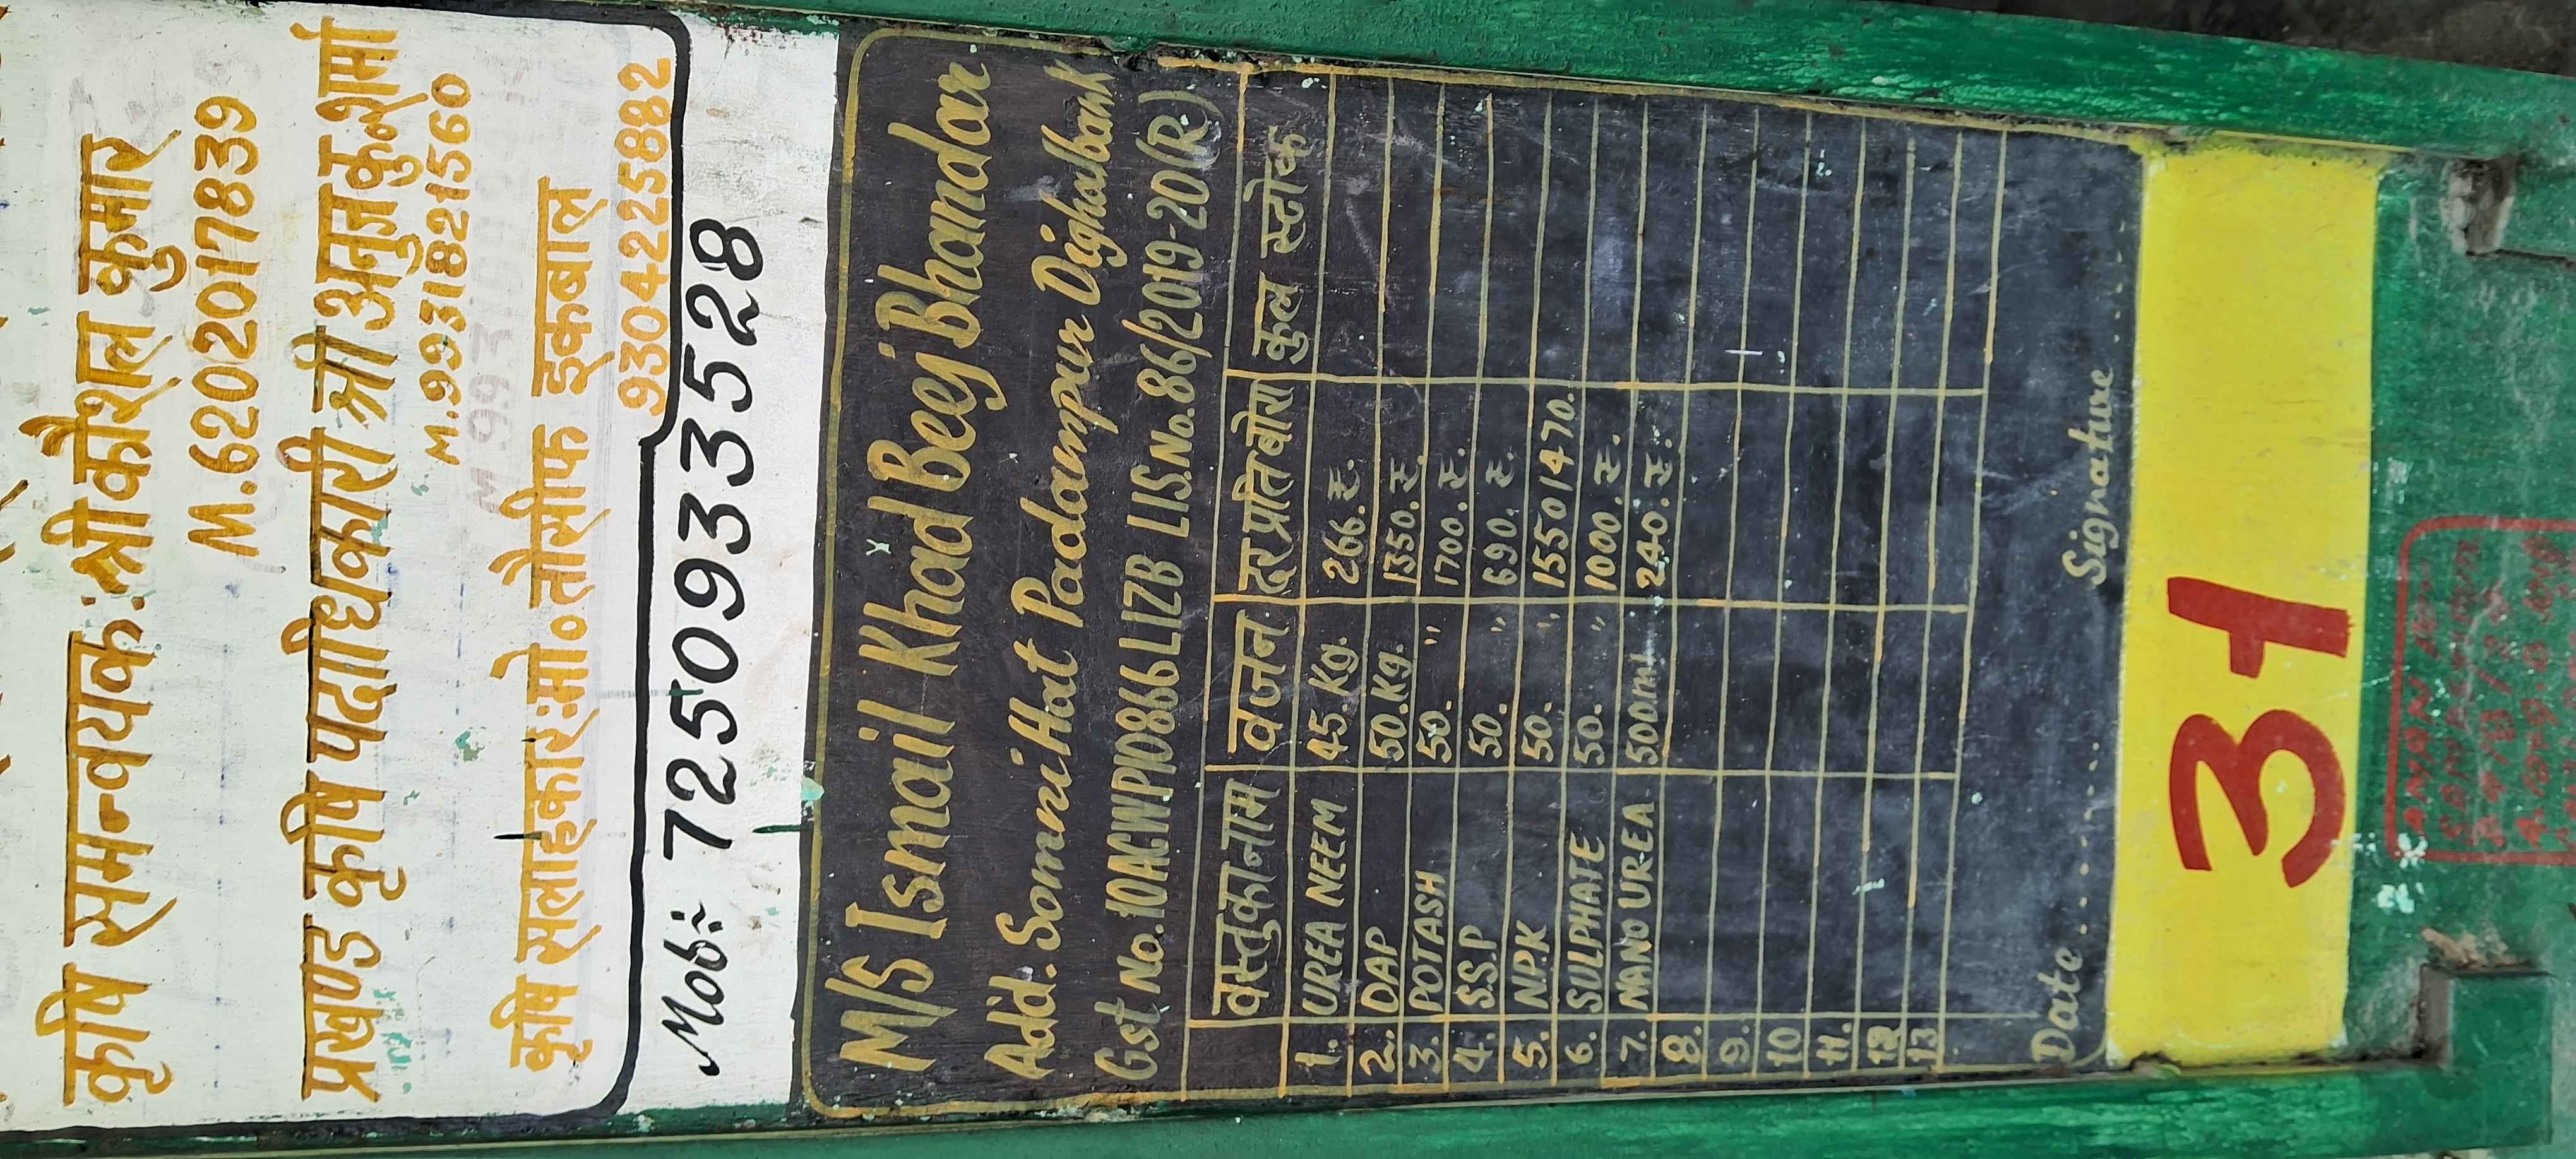 कृषि समन्वयक:श्री कौशल कुमार
M.6202017839
प्रखण्ड कृषि पदाधिकारी श्री अनुज कु॰ शर्मा
M.9931821560
कृषि सलाहकार:मो॰ तौसीफ इकबाल
9304225882
Mob:- 7250933528
M/S Ismail Khad Beej Bhandar
Add. Somni Hat Padampur Dighalbank
Gst No.10AGWPI0866L1ZB LIS.No.86/2019-20(R)
वस्तु का नाम वजन दर प्रति बोरा कुल स्टोक
1. UREA NEEM 45 Kg. 266.रु.
2. DAP 50.Kg. 1350.रु.
3. POTASH 50. " 1700.रु.
4. S.S.P 50. " 690.रु.
5. N.P.K 50. " 1550 1470.
6. SULPHATE 50. " 1000.रु.
7. NANO UREA 500ml 240.रु.
8.
9.
10
11.
12
13
Date........ Signature......
31